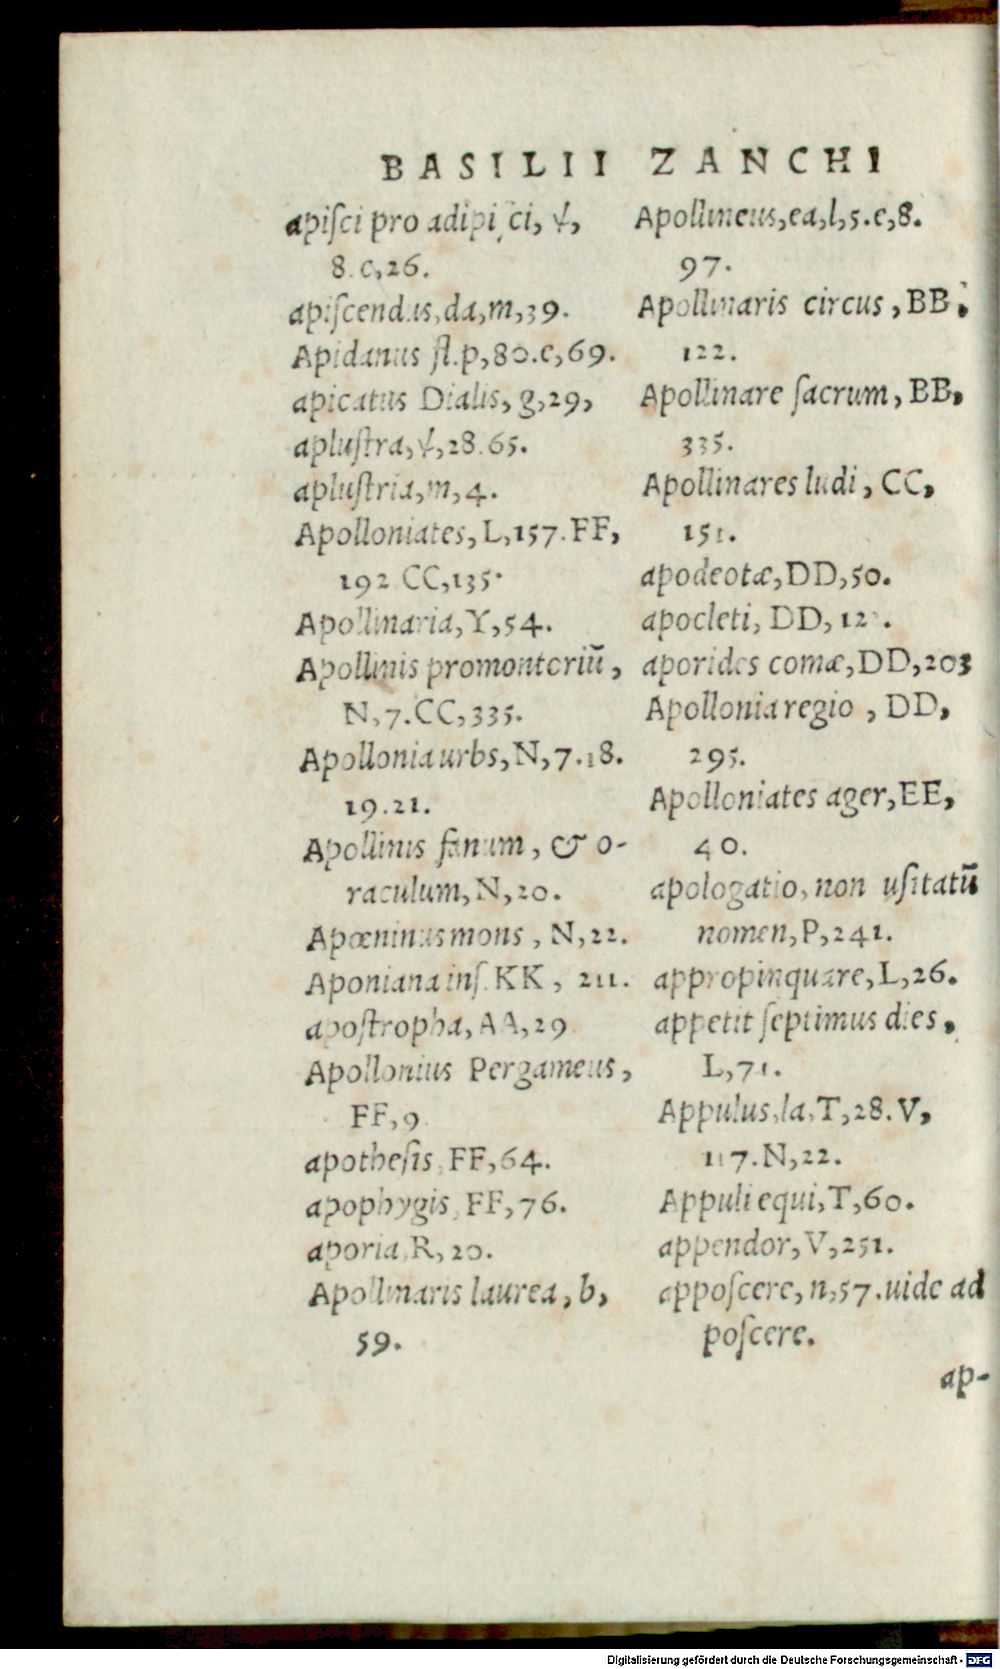 BASILII ZANCHI
apiſci pro adipiſci, ψ,
8.c,26.
apiſcendus,da,m,39.
Apidanus fl.p,80.c,69.
apicatus Dialis, g,29,
apluſtra,ψ,28.65.
apluſtria,m,4.
Apolloniates, L,157.FF,
192 CC,135.
Apollinaria,Y,54.
Apollinis promontoriū,
N,7.CC,335.
Apollonia urbs,N,7.18.
19.21.
Apollinis fanum, & o-
raculum,N,20.
Apœninus mons, N,22.
Aponiana inſ. KK, 211.
apoſtropha, AA,29
Apollonius Pergameus,
FF,9
apotheſis, FF,64.
apophygis, FF,76.
aporia,R,20.
Apollinaris laurea, b,
59.
Apollineus,ea,l,5.c,8.
97.
Apollinaris circus, BB,
122.
Apollinare ſacrum, BB,
335.
Apollinares ludi, CC,
151.
apodeotæ,DD,50.
apocleti, DD,
aporides comæ,DD,203
Apollonia regio, DD,
295.
Apolloniates ager,EE,
40.
apologatio, non uſitatū
nomen,P,241.
appropinquare,L,26.
appetit ſeptimus dies,
L,71.
Appulus,la,T,28.V,
117.N,22.
Appuli equi,T,60.
appendor,V,251.
appoſcere,n,57.uide ad
poſcere.
ap-
Digitalisierung gefördert durch die Deutsche Forschungsgemeinschaft - DFG